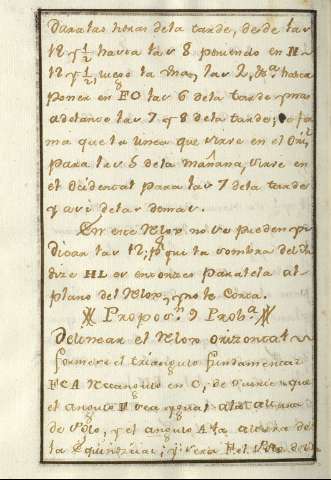 Para las horas dela tarde, desde las
12 y ½ hasta las 8 poniendo en
12 y ½, luego la una, las 2, &.ª hasta
poner en FO las 6 dela tarde y mas
adelante las 7 y 8 dela tarde; de for
ma que la linea que sirve en el Ori.ᵗ
para las 5 dela mañana, sirve en
el Ocidental para las 7 dela tarde
y asi delas demas.
En este Relox no se pueden in
dicar las 12; p.ʳ que la sombra del In
dize HL es entonces paralela al
plano del Relox, y no le corta.
Propos.ⁿ 9 Prob.ª
Delinear el Relox orizontal
formese el triangulo fundamental
FCA Rectangulo en C, de suerte que
el angulo F sea ygual ala altura
de Polo, y el angulo A la altura de
la Equinozial; y sera F el